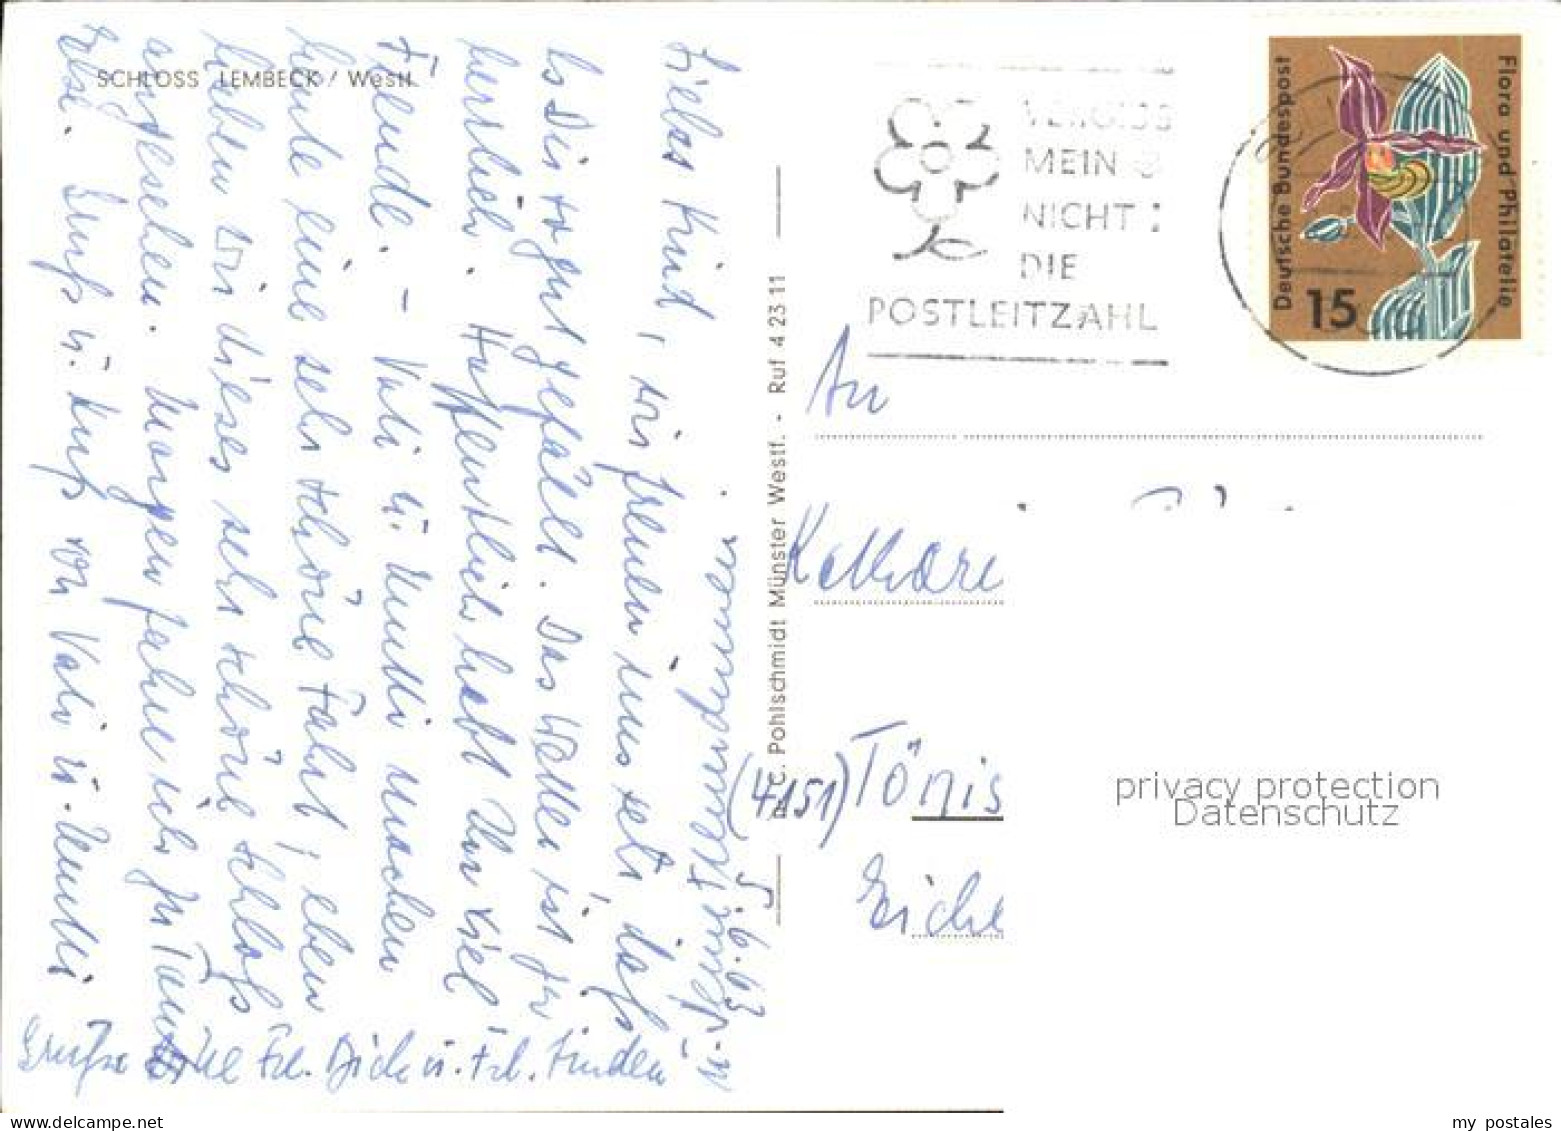 SCHLOSS LEMBECK / Westf.
5.6.63
Liebes Kind, wir freuen uns sehr, daß
es Dir so gut gefällt. Das Wetter ist ja
herrlich. Hoffentlich habt Ihr viel
Freude. – Vati u. Mutti machen
heute eine sehr schöne Fahrt, eben
haben wir dieses sehr schöne Schloß
angesehen. Morgen fahre ich zu Tante
Else. Gruß u. Kuß von Vati u. Mutti
Grüße Frl. Dick u. Frl. Linden
C. Pohlschmidt Münster Westf. - Ruf 4 23 11
VERGISS
MEIN
NICHT
DIE
POSTLEITZAHL
Deutsche Bundespost
15
Flora und Philatelie
An
Kathare
(4151) Tönis
Eiche
privacy protection
Datenschutz
my postales